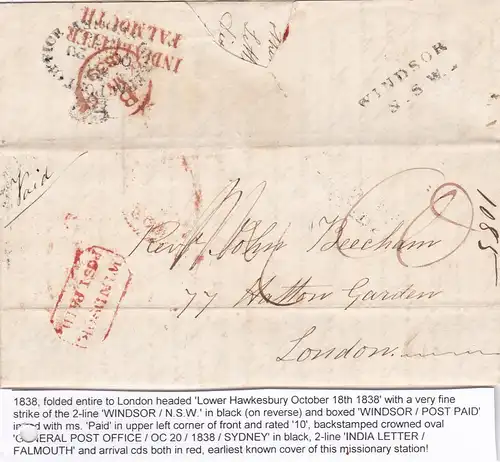 INDIA LETTER
FALMOUTH
WINDSOR
N.S.W.
Paid
1085
Revd John Beecham
77 Hatton Garden
London.
WINDSOR
POST PAID
1838, folded entire to London headed 'Lower Hawkesbury October 18th 1838' with a very fine
strike of the 2-line 'WINDSOR / N.S.W.' in black (on reverse) and boxed 'WINDSOR / POST PAID'
in red with ms. 'Paid' in upper left corner of front and rated '10', backstamped crowned oval
'GENERAL POST OFFICE / OC 20 / 1838 / SYDNEY' in black, 2-line 'INDIA LETTER /
FALMOUTH' and arrival cds both in red, earliest known cover of this missionary station!